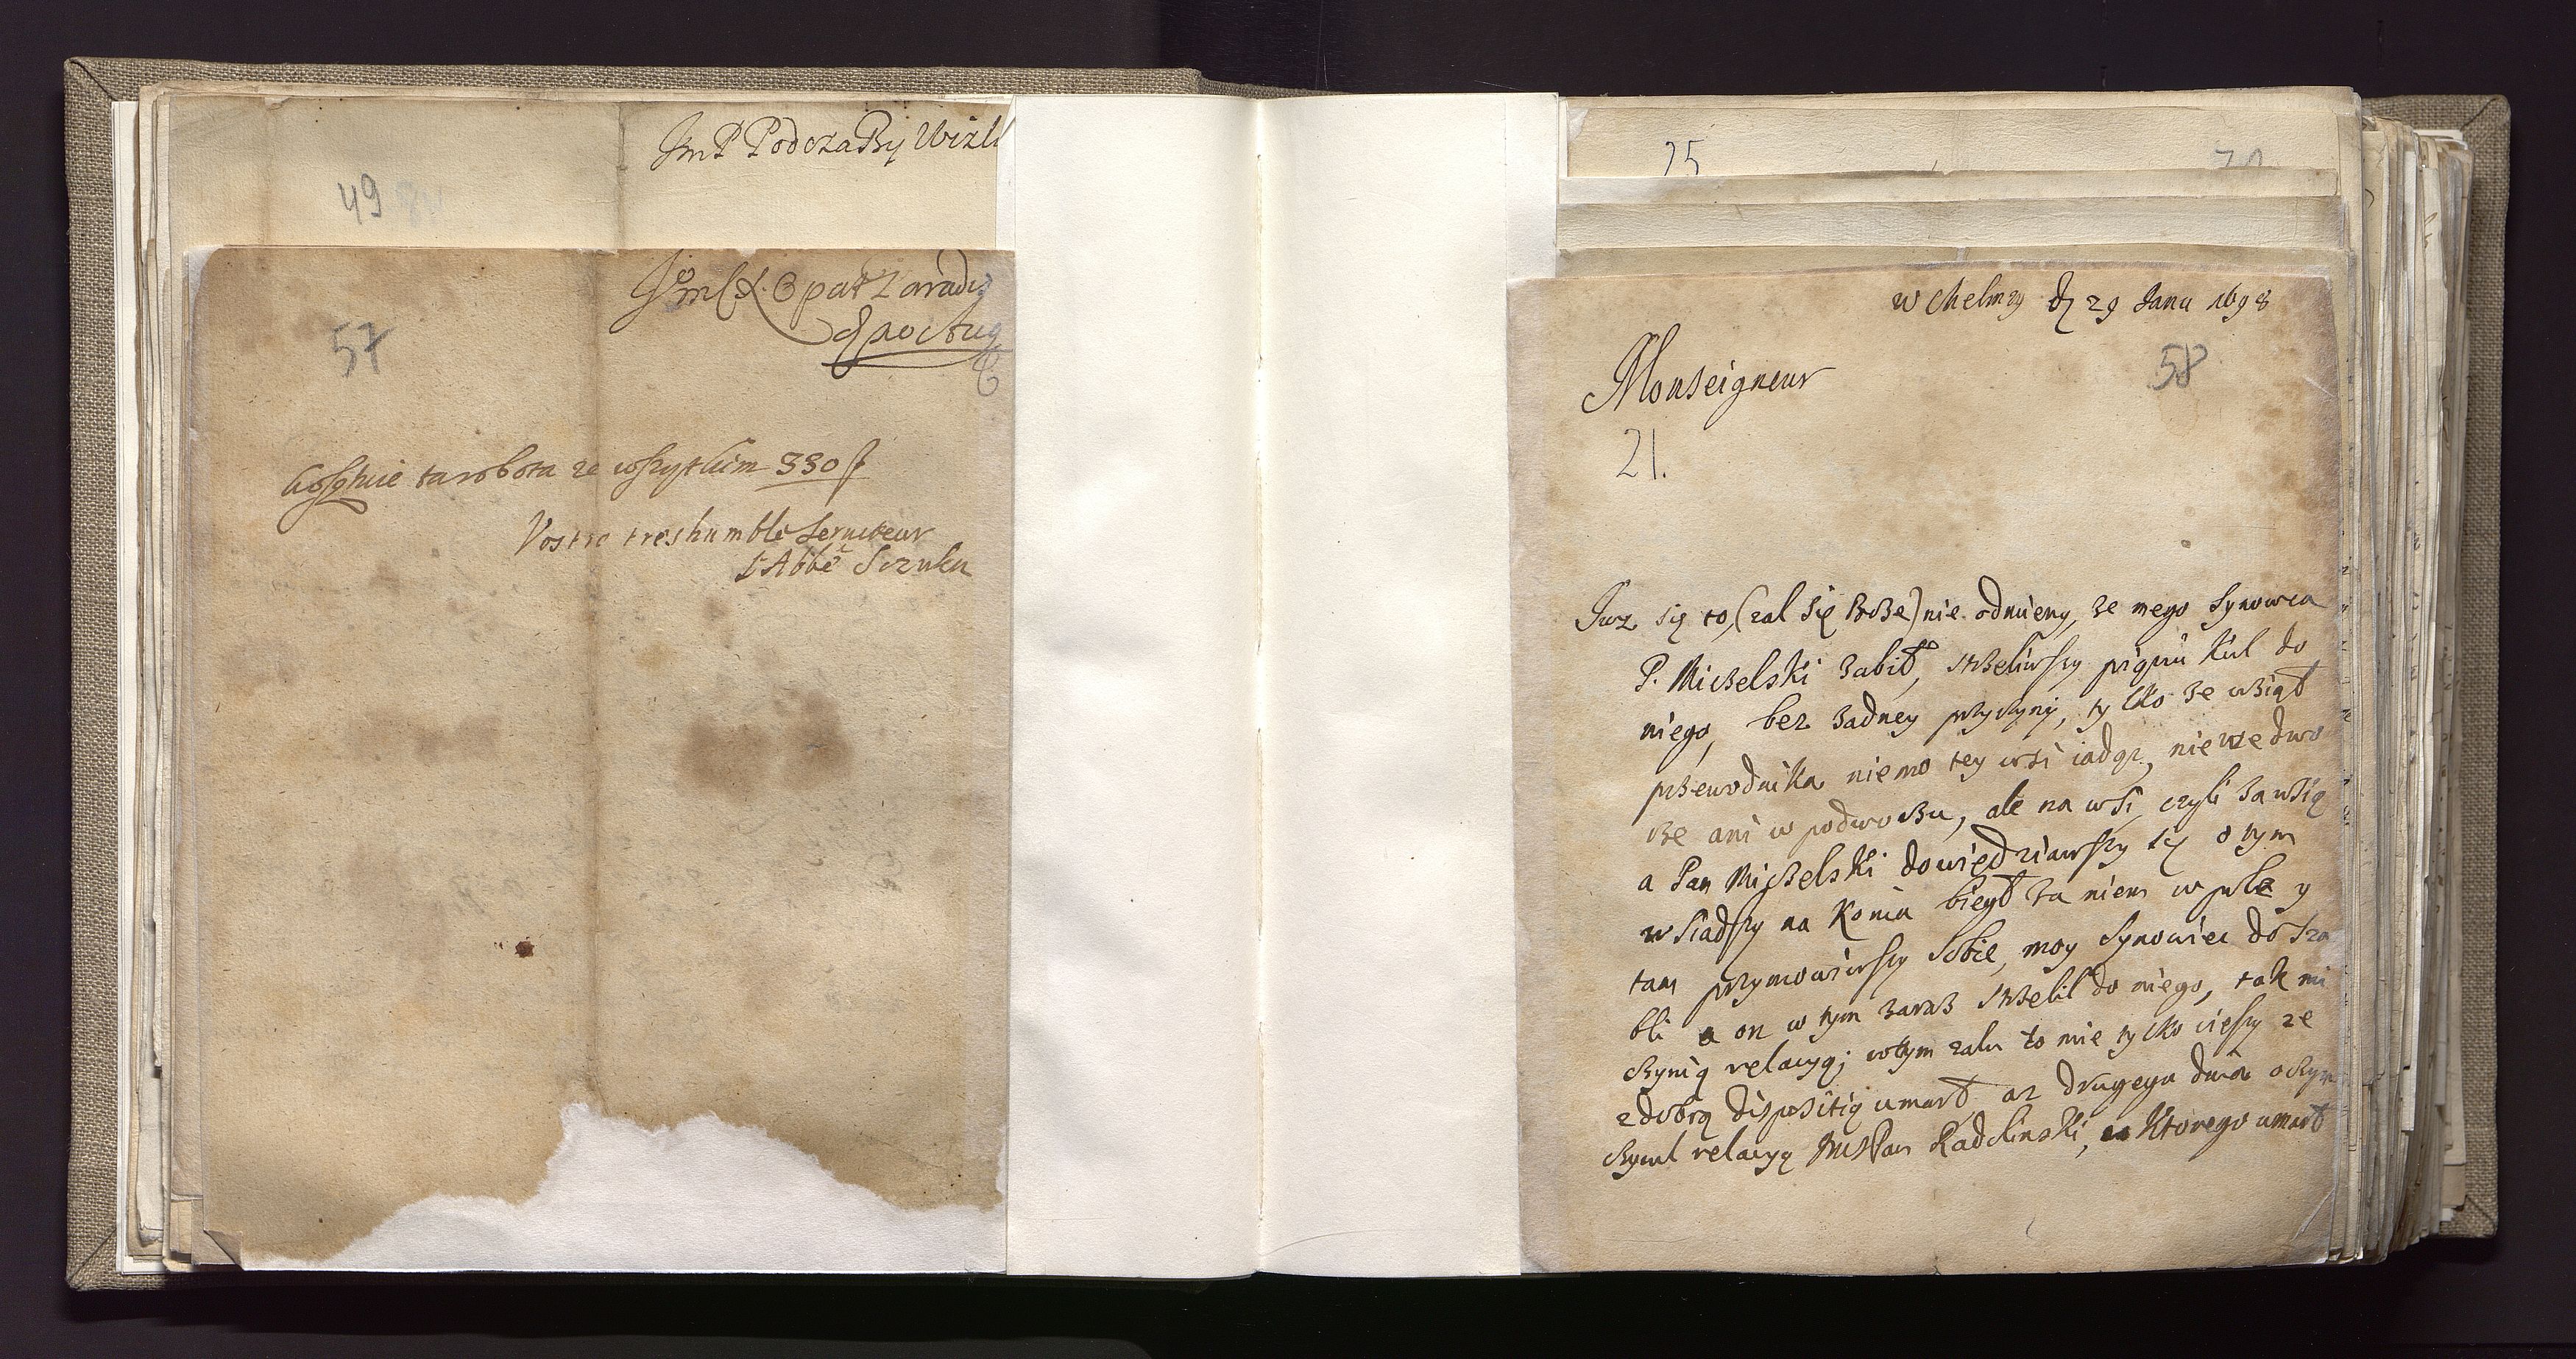 JmP PodczaSzy Wizki
49
Jmć X. Opat Paradiz
57
kosztuie ta robota ze wszytkim 330 f
Vostre treshumble serviteur
l'Abbé Sczuka
25
w Chełmzy d 29 Janu 1698
Monseigneur
58
21.
Juz się to, (zal się Boze) nie odmieny, ze mego Synowca
P. Miczelski zabił, strzeliwszy pięciu kul do
niego, bez zadney przyczyny, tylko ze wziął
przewodnika niemo tey wsi iadąc, nie we dwo
rze ani w podworzu, ale na wsi,
a Pan Miczelski dowiedziawszy się o tym
wsiadszy na konia biegł za niem w pole y
tam przymowiwszy sobie, moy Synowiec do sza
bli a on w tym zaraz strzelił do niego, tak mi
czynią relacyą; w tym zalu to mie tylko cieszy ze
z dobrą dispositią umarł az drugiego dnia o czym
czynił relacyą JmPan Radolinski, u ktorego umarł